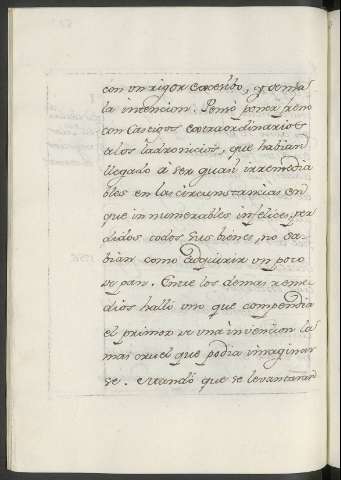 con un rigor excesibo, y demas
la intencion. Pensò poner freno
con Castigos extraordinarios
a los ladronicios, que habian
llegado à ser quasi irremedia
bles en las circunstancias en
que innumerables infelices, per
didos todos sus bienes, no sa-
bian como adquirir un poco
de pan. Entre los demas reme-
dios hallò uno que compendia
el primor de una invencion la
mas cruel que podia imaginar
se. Mandò que se levantaran